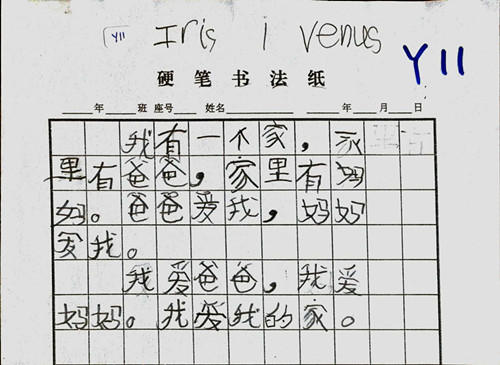 Y11 Iris | Venus
Y11
硬笔书法纸
____年____班 座号____ 姓名____ ____年____月____日
我有一个家，家
里有爸爸，家里有妈
妈。爸爸爱我，妈妈
爱我。
我爱爸爸，我爱
妈妈。我爱我的家。